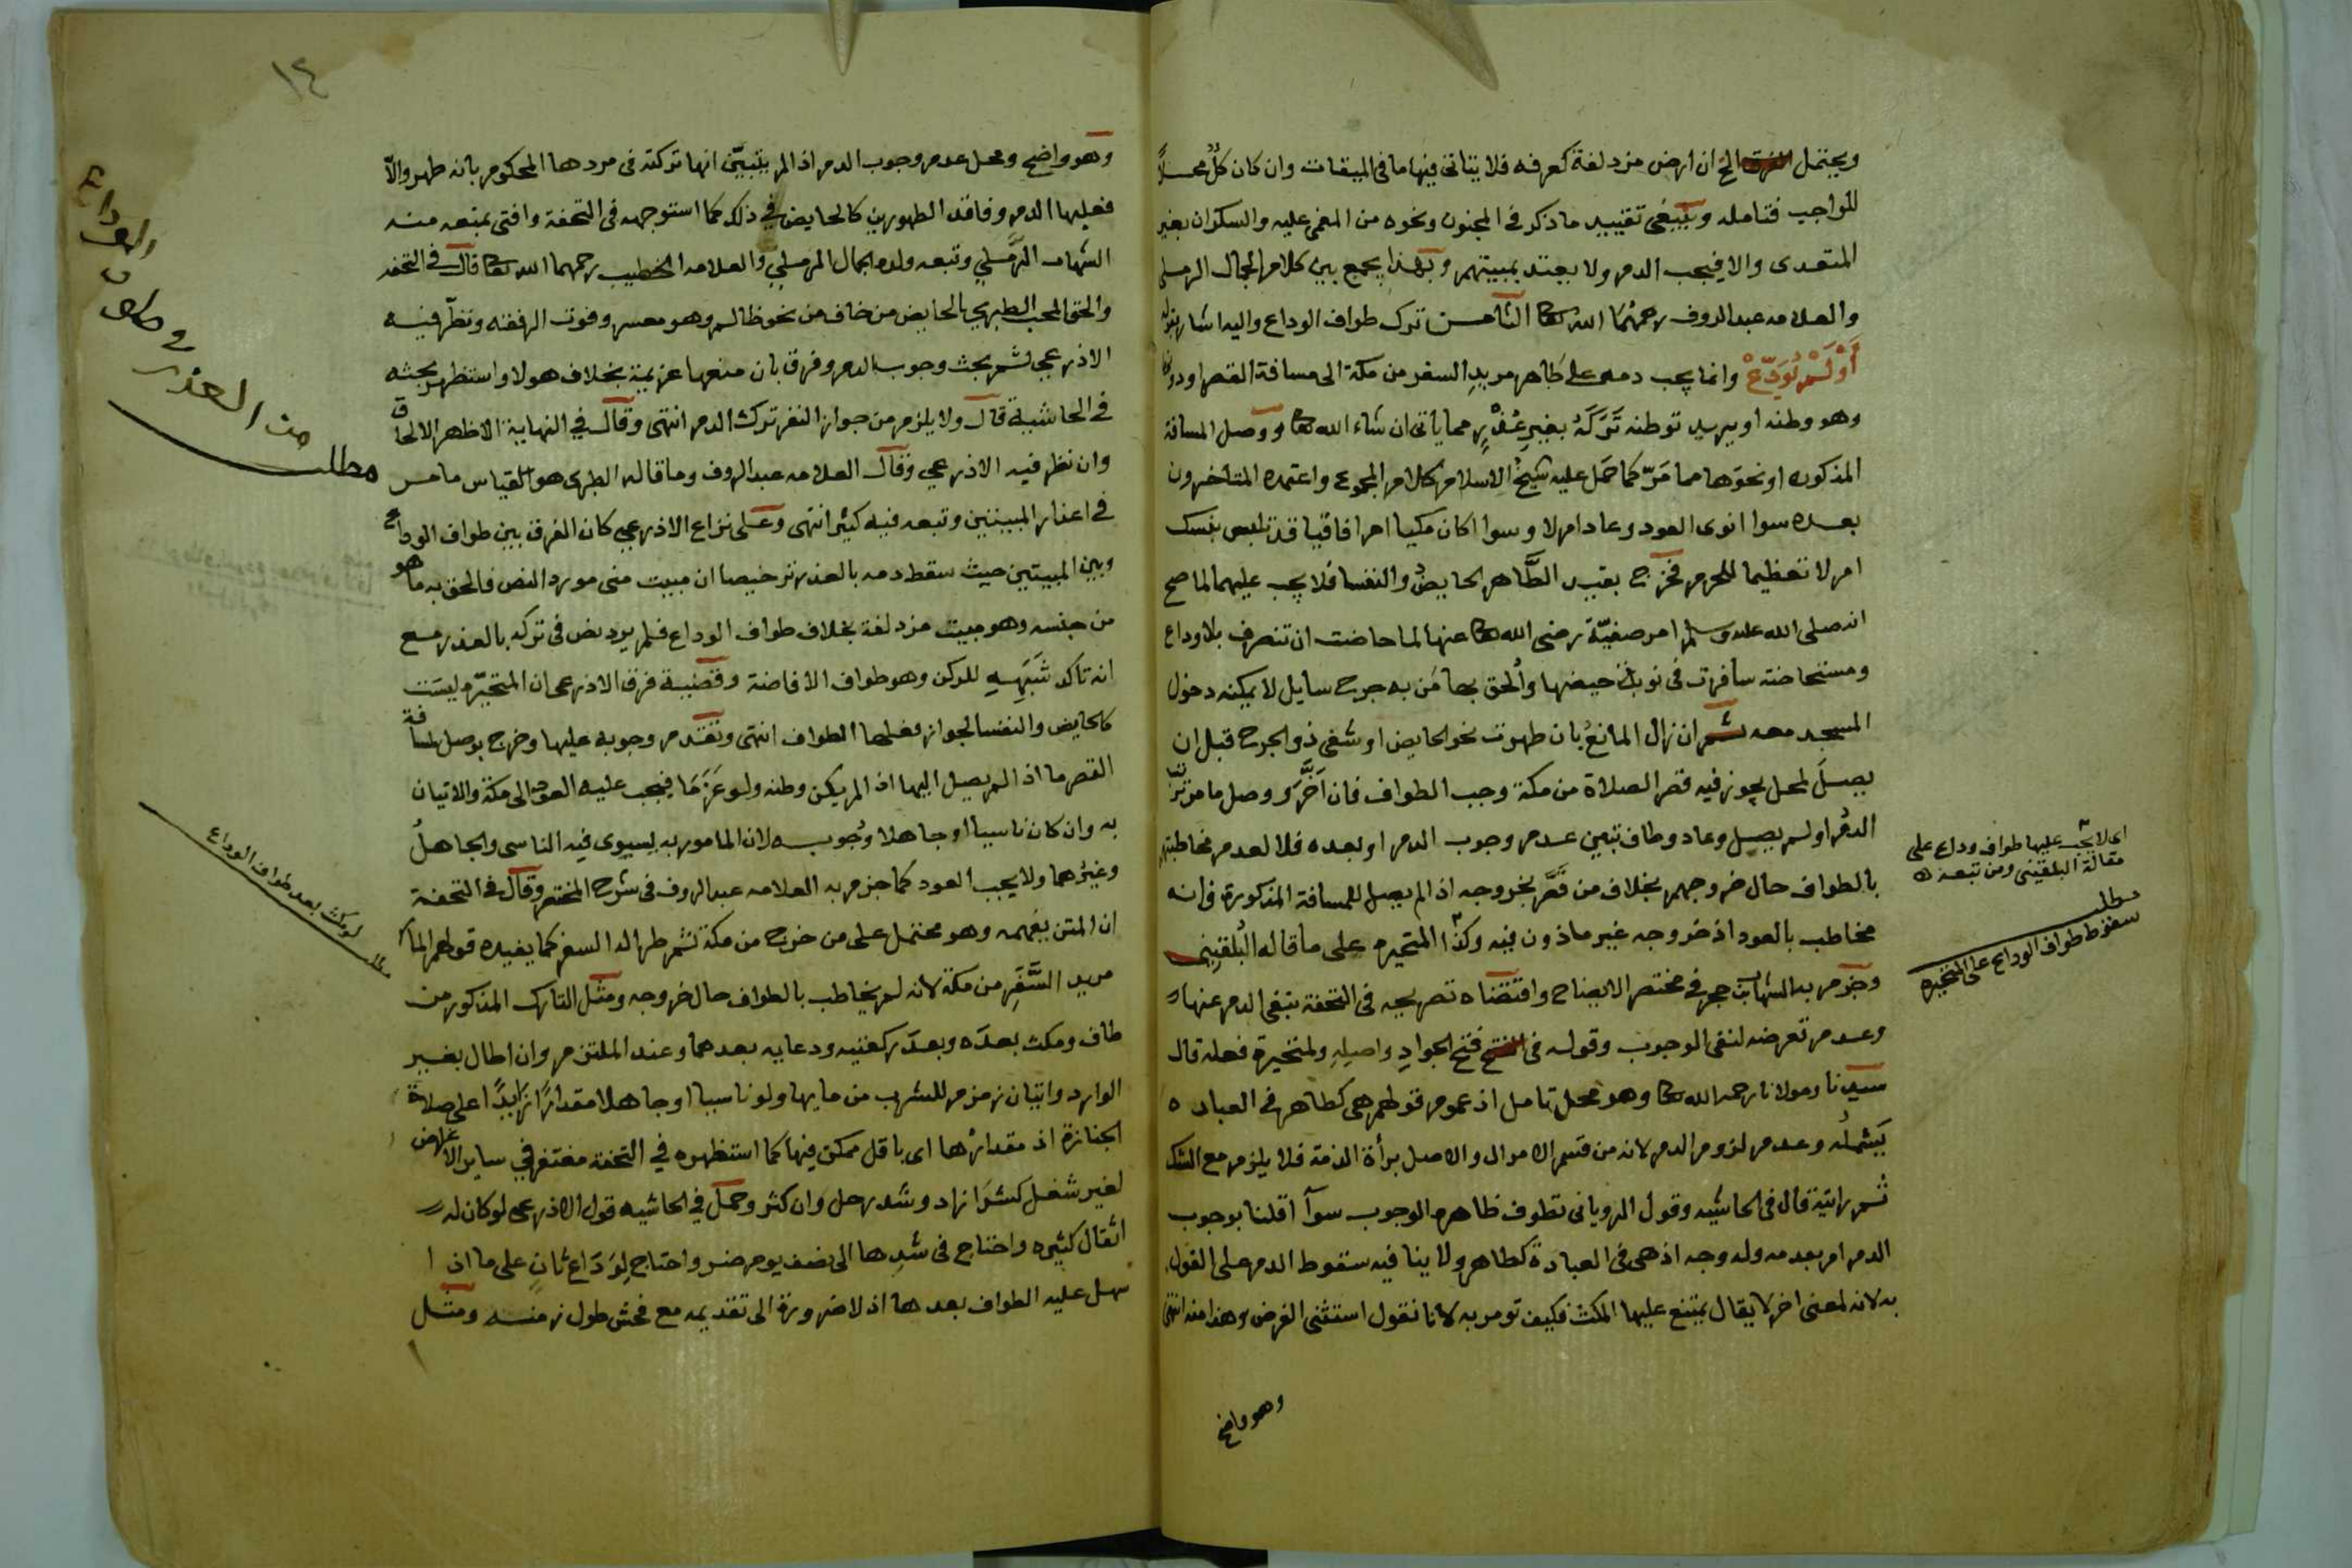 ويحتمل الفرق الخ ان ارض مزدلفة كعرفه فلا يتاتى فيها ما فى الميقات وان كان كلٌ محلاً
للواجب فتامله وينبغى تقييد ما ذكر فى المجنون ونحوه من المغمى عليه والسكران بغير
المتعدى والا فيجب الدم ولا يعتد بمبيتهم وبهذا يجمع بين كلام الجمال الرملى
والعلامه عبد الروف رحمهما الله تعا الثامن ترك طواف الوداع واليه اشار بقوله
أَوْ لَمْ يُوَدِّعْ وانما يجب دمه على طاهر مريد السفر من مكة الى مسافة القصر او دونها
وهو وطنه او يريد توطنه تَرَكَهُ بغير عُذْرٍ مما ياتى ان شاء الله تعا ووصل المسافة
المذكوره او نحوَها مما مَرّ كما حَمَل عليه شيخُ الاسلام كلام المجموع واعتمده المتاخرون
بعده سوا انوى العود وعاد ام لا وسوا اكان مكيا ام افاقيا قد تلبس بنسك
ام لا تعظيما للحرم فخرج بقيد الطَّاهر الحايضُ والنفسا فلا يجب عليهما لما صح
انه صلى الله عليه وسلم امر صفيّة رضى الله تعا عنها لما حاضت ان تنصرف بلا وداع
ومستحاضة سافرت فى نوبة حيضها وأُلحق بها مَن به جرح سايل لا يمكنه دخول
المسجد معه ثم ان زال المانعُ بان طهرت نحو الحايض او شفى ذو الجرح قبل ان
يصلَ لمحل يجوز فيه قصر الصلاة من مكة وجب الطواف فان اَخَّرَ ووصل ما مر ترتب
الدمُ او لم يصل وعاد وطاف تبين عدم وجوب الدم او بعده فلا لعدم مخاطبتهم
بالطواف حال خروجهم بخلاف من قَصَّر بخروجه اذ لم يصل للمسافة المذكورة فانه
مخاطب بالعود اذ خروجه غير ماذون فيه وكذا المتحيره على ما قاله البُلقينى
وجزم به الشهاب بن حجر فى مختصر الايضاح واقتضاه تصريحه فى التحفة بنفى الدم عنها
وعدم تعرضه لنفى الوجوب وقوله فى فتح الجوادِ واصيلِهِ ولمتحيرة فعله قال
سيدنا ومولانا رحمه الله تعا وهو محل تامل اذ عموم قولهم هى كطاهر فى العباده
يَشملُه وعدم لزوم الدم لانه من قسم الاموال والاصل برأة الذمة فلا يلزم مع الشك
ثُم رايته قال فى الحاشيه وقول الرويانى تطوف ظاهره الوجوب سوآ اقلنا بوجوب
الدم ام بعدمه وله وجه اذ هى فى العبادة كطاهر ولا ينافيه سقوط الدم على القول
به لانه لمعنى اخر لا يقال يمتنع عليها المكث فكيف تومر به لانا نقول استثنى الفرض وهذا منه انتهى
وهو واضح
اى لا يجب عليها طواف وداع على
مقالة البلقينى ومن تبعه
مطلب
سقوط طواف الوداع على المتحيره
١٤
وهو واضح ومحل عدم وجوب الدم اذا لم يتبيّن انها تركته فى مردها المحكوم بانه طهر والاّ
فعليها الدم وفاقد الطهورين كالحايض فى ذلك كما استوجهه فى التحفة وافتى بمنعه منه
الشهاب الرَّملى وتبعه ولده الجمال الرملى والعلامه الخطيب رحمهما الله تعا قال فى التحفه
والحق المحب الطبرى بالحايض من خاف من نحو ظالم وهو معسر وفوت الرفقه ونظّر فيه
الاذرعى ثم بحث وجوب الدم وفرق بان منعها عزيمة بخلاف هولا واستظهر بحثه
فى الحاشية قال ولا يلزم من جواز النفر ترك الدم انتهى وقال فى النهاية الاظهر الالحاق
وان نظر فيه الاذرعى وقال العلامه عبد الروف وما قاله الطبرى هو القياس ما مر
فى اعذار المبيتين وتبعه فيه كثير انتهى وعلى نزاع الاذرعى كان الفرق بين طواف الوداع
وبين المبيتين حيث سقط دمه بالعذر ترخيصا ان مبيت منى مورد النص فالحق به ما هو
من جنسه وهو مبيت مزدلفة بخلاف طواف الوداع فلم يرد نص فى تركه بالعذر مع
انه تاكد شَبَهِهِ للركن وهو طواف الافاضة وقضية فرق الاذرعى ان المتحيّره ليسَت
كالحايض والنفسا لجواز فعلها الطواف انتهى وتقدم وجوبه عليها وخرج بوصل لمسافة
القصر ما اذا لم يصل اليها اذ لم يكن وطنه ولو عَزَمَا فيجب عليه العود الى مكة والاتيان
به وان كان ناسيا او جاهلا وجُوبه لان المامور به يستوى فيه الناسى والجاهلُ
وغيرُهما ولا يجب العود كما جزم به العلامه عبد الروف فى شرح المختصر وقال فى التحفة
ان المتن يفهمه وهو محتمل على من خرج من مكة ثم طرا له السفر كما يفيده قولهم المار
مريد السَّفَرِ من مكة لانه لم يخاطب بالطواف حال خروجه ومثل التارك المذكور من
طاف ومكث بعدَه وبعدَ ركعتيه ودعايه بعدهما وعند الملتزم وان اطال بغير
الوارد واتيان زمزم للشرب من مايها ولو ناسيا او جاهلا مقدارًا زَايدًا على صلاة
الجنازة اذ مقدارُها اى باقل ممكن فيها كما استظهره فى التحفة مغتفر فى ساير الاغراض
لغير شغل كشرَا زاد وشد رحل وان كثر وحمل فى الحاشيه قول الاذرعى لو كان له
اثقال كثيره واحتاج فى شدِها الى نصف يوم ضر واحتاج لِوَدَاع ثانٍ على ما اذا
سهل عليه الطواف بعدها اذ لا ضرورة الى تقديمه مع فحش طول زمنه ومثل
مطلب
لو مكث بعد طواف الوداع